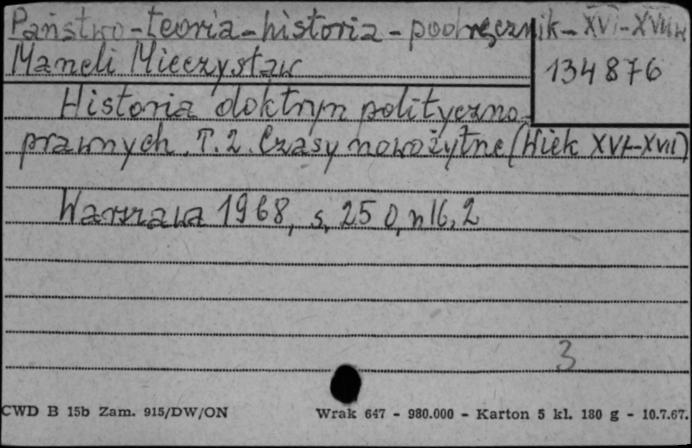 Państwo-teoria-historia-podręcznik-XVI-XVIIw
Maneli Mieczysław
134876
Historia doktryn polityczno-
prawnych. T.2. Czasy nowożytne (Wiek XVI-XVII)
Warszawa 1968, s. 250, nlb, 2
3
CWD B 15b Zam. 915/DW/ON
Wrak 647 - 980.000 - Karton 5 kl. 180 g - 10.7.67.